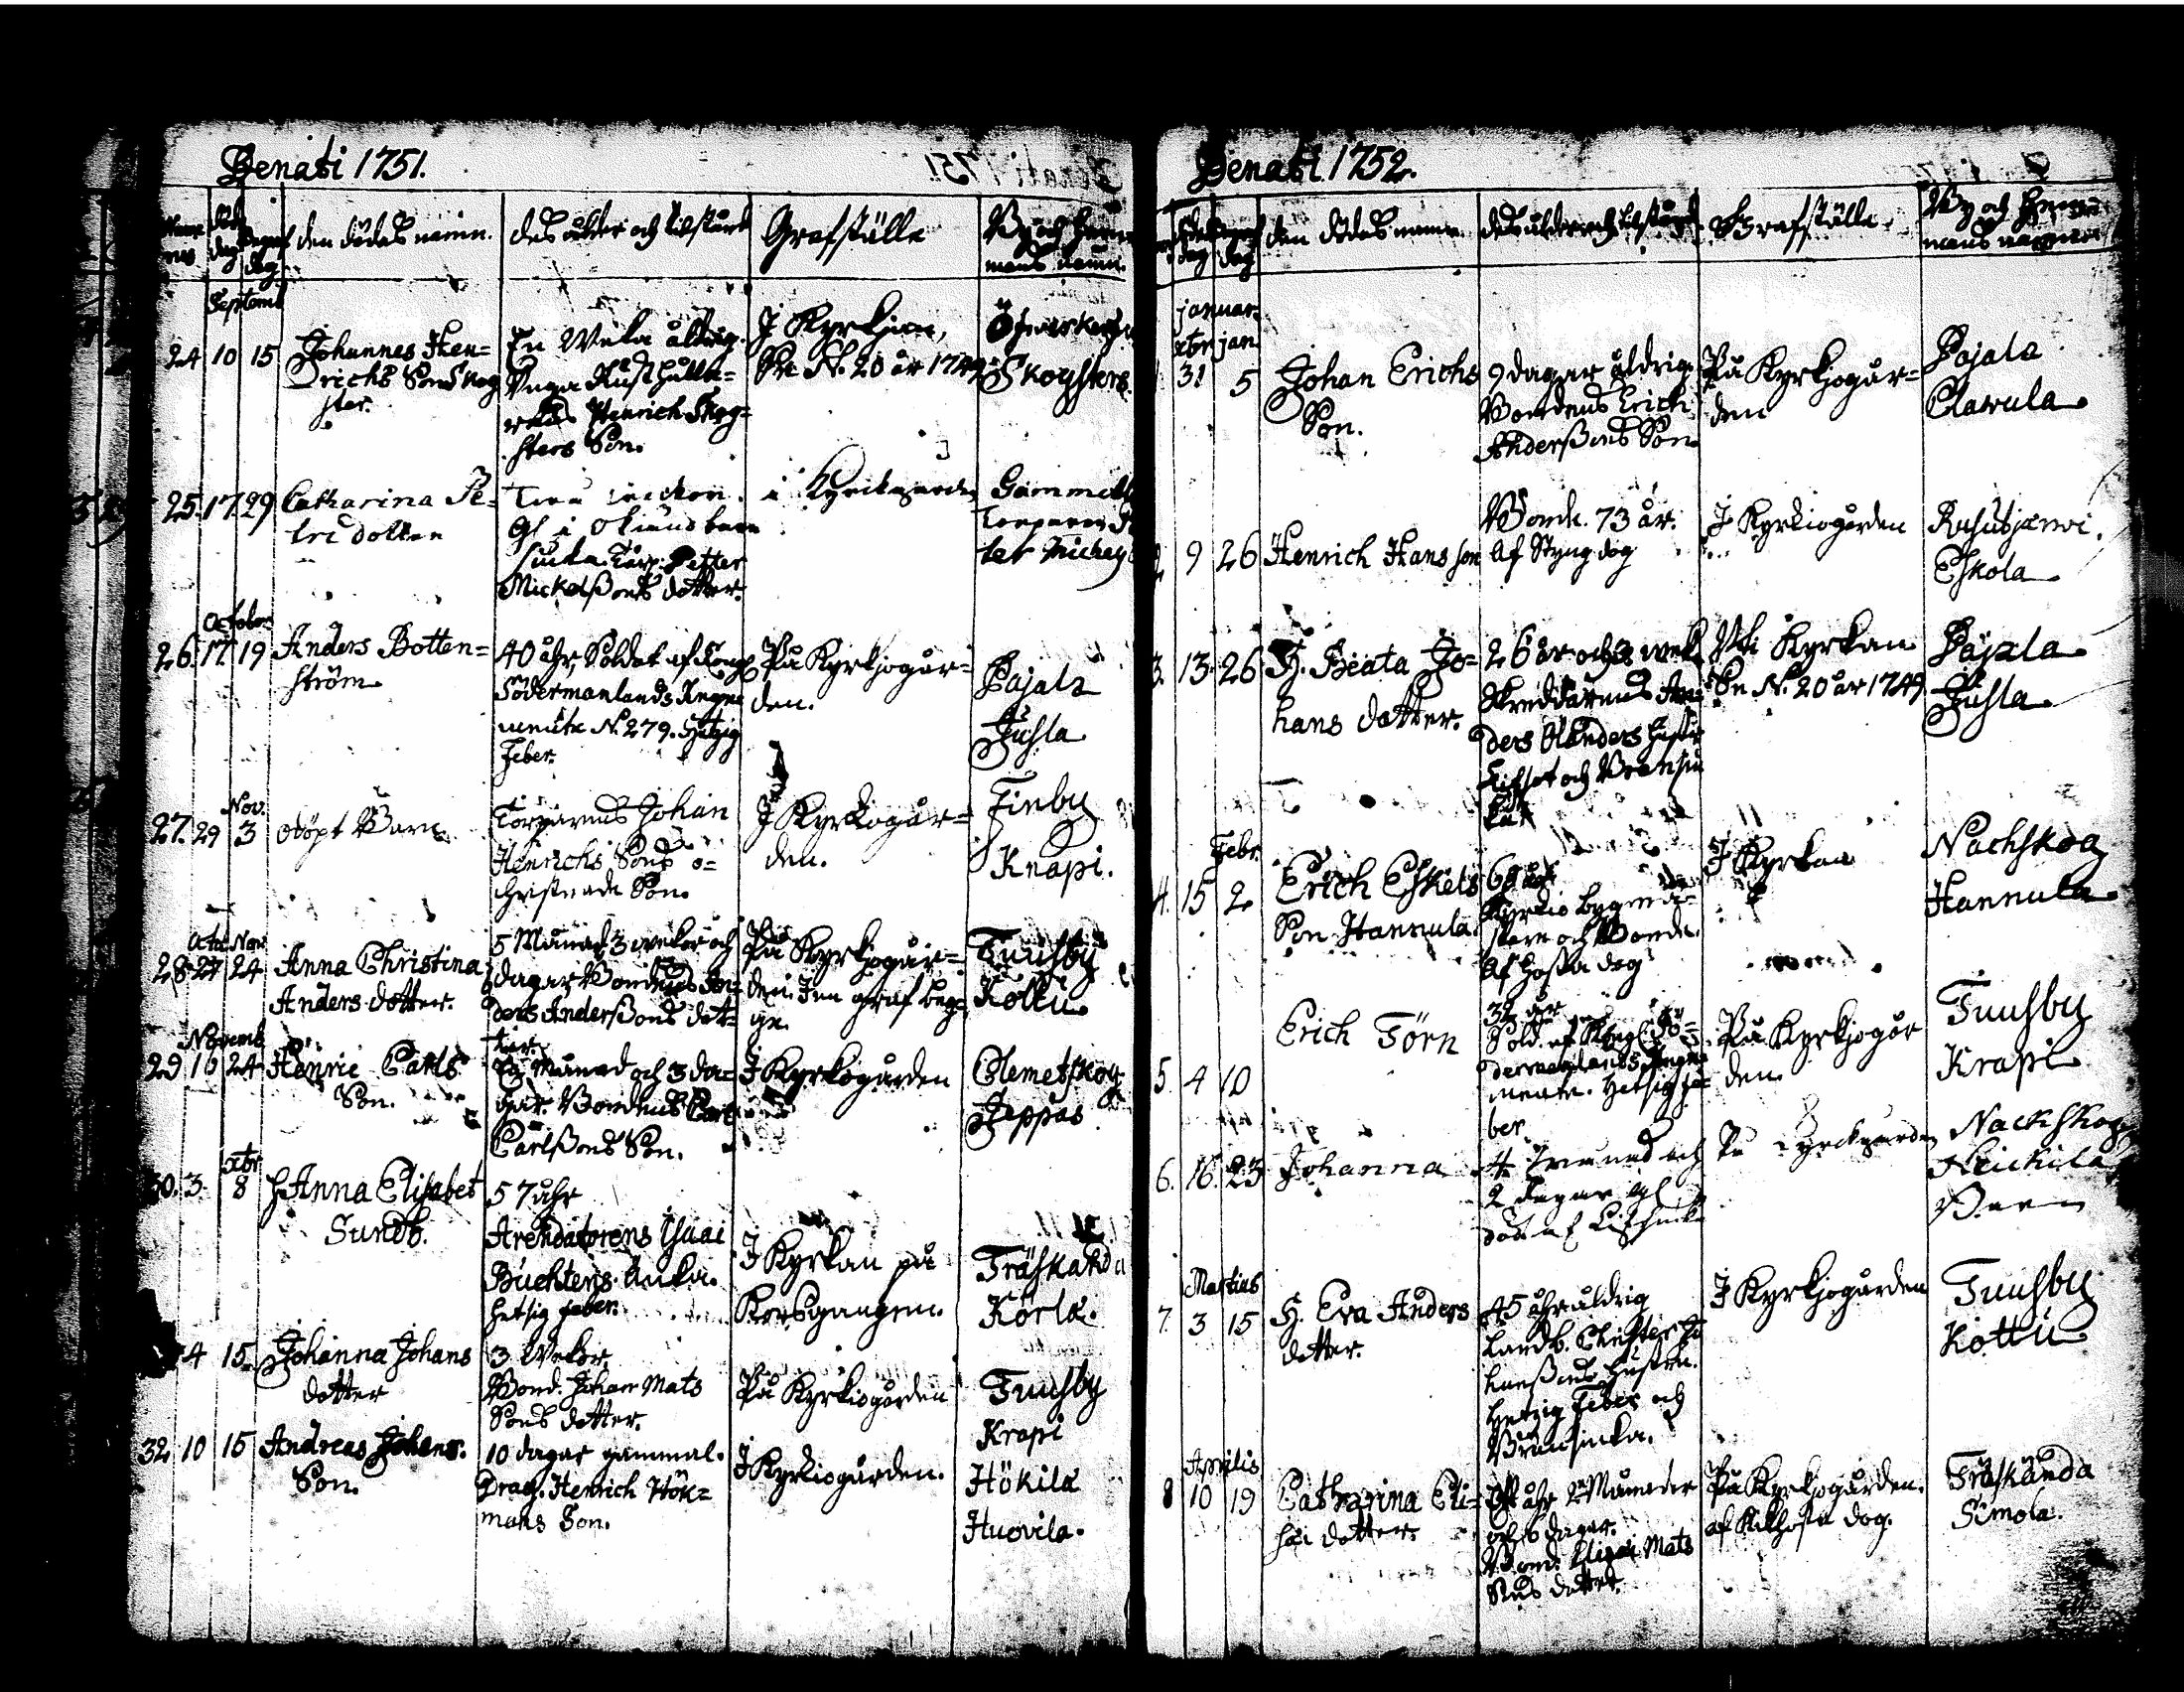 Denati 1751.
den dödas namn.
des ålder och tilstånd
Grafställe
By och hem=
mans namn.
Septemb
24 10 15
Johannes Hen=
richs Son Skog
ster.
En Weka åldrig.
Henrich Skog=
sters Son.
I Kyrkjan,
N. 20 år 1749
Skogsters
25. 17. 29
Catharina Pe=
tri dotter
Petter
Mickelßons dotter.
i Kyrckgården
October
26. 17 19
Anders Botten=
ström
40 åhr Soldat af Kongl
Södermanlands Rege
mente N. 279. Hetzig
Feber.
På Kyrkjogår=
den.
Pajala
Juhla
Nov.
27. 29 3
odöpt Barn
Torparens Johan
Henrichs Sons o=
christnade Son.
I Kyrkiogår=
den.
Finby
Knapi.
Oct. Nov
28 27 24
Anna Christina
Anders dotter.
5 Månad 3 wekor och
dagar Bondens An=
ders Anderßons dot=
ter.
På Kyrkjogår=
den.
Tuusby
Kottu
Novemb
29 16 24
Henric Carls
Son.
Månad och 3 da=
gar. Bondens Carl
Carlßons Son.
I Kyrkogården
Clemetskog
Jeppas
xbr
30. 3. 8
H. Anna Elisabet
Sundb.
57 åhr
Arendatorens Isaai
Buchters Enka.
hetsig feber.
I Kyrkan på
Korsgangen.
Träskända
Körla.
4 15
Johanna Johans
dotter
3 Wekor.
Bond. Johan Mats
Sons dotter.
På Kyrkiogården
Tuusby
Krapi
32 10 15
Andreas Johans.
Son.
10 dagar gammal.
Drag. Henrich Hök=
mans Son.
I Kyrkiogården.
Hökila
Huovila.
Denati 1752.
den dödas namn
des ålder och tilstånd
Grafställe
By och hem=
mans namn
Januar.
xbr jan
31 5
Johan Erichs
Son.
9 dagar åldrig.
Bondens Erich
Anderßons Son
På Kyrkjogår=
den
Pajala
Clavula
2 9 26
Henrich Hansson
Bonde. 73 år.
af Styng dog
I Kyrkiogården
Rusutjärwi.
Eskola
3. 13. 26
H. Beata Jo=
hans dotter.
26 år och 3 wek
Skreddarens An=
ders Olanders hustr
Uti Kyrkan
N. 20 år 1749
Pajala
Juhla
Febr.
4. 15 2
Erich Eskels
Son Hannula.
Kyrkio bygmä=
stare och Bonde.
af hosta dog
I Kyrkan
Nachskog
Hannula
5. 4 10
Erich Törn
32 år
Sold. af Kongl. Sö=
dermanlands Rege
mente. Hetsig fe=
ber
På Kyrkjogår
den
Tuusby
Krapi
6. 16. 23
Johanna
4 månad och
2 dagar
På Kyrckgården
Nackskog
Heickila
Barn
Martius
7. 3 15
H. Eva Anders
dotter.
45 åhr åldrig
Landb. Christer Jo
hanßons hustru.
Hetzig Feber och
Bränsiuka.
I Kyrkjogården
Tuusby
Kottu
Aprilis
8 10 19
Catharina Eli=
sai dotter.
åhr 2 Månader
och 6 dagar.
Bond. Elisai Mats
Sons dotter.
På Kyrkjogården.
af Kikhosta dog.
Träskända
Simola.